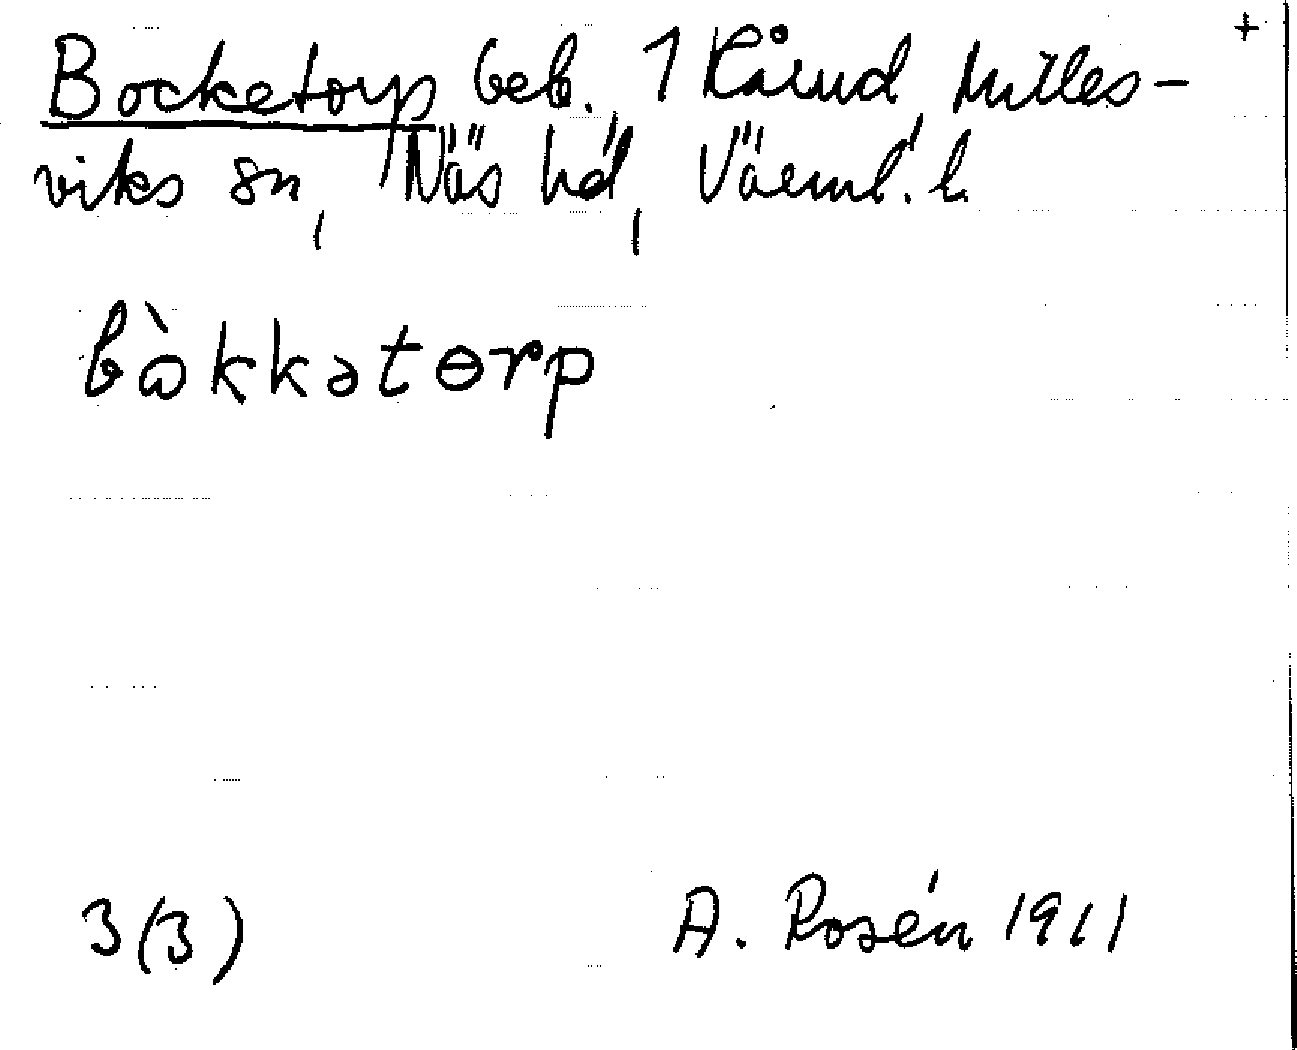 +
Bocketorp beb. 1 Råmd, Milles-
viks sn, Näs hd, Värml. l.
bòkkətɵrp
3(3)
A. Rosén 1911